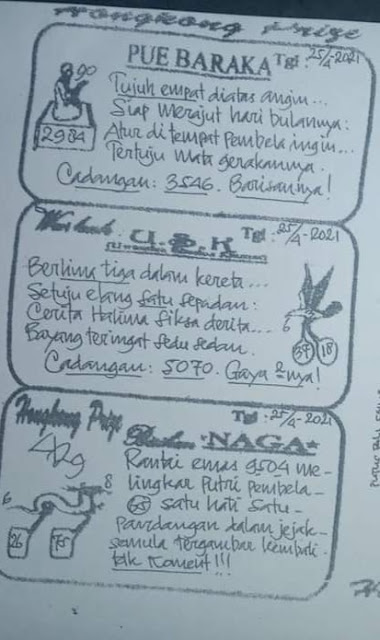 Hongkong Prize
PUE BARAKA Tgl: 25/4-2021
90
2984
Tujuh empat diatas angin...
Siap merajut hari bulannya:
Atur di tempat pembela ingin...
Tertuju mata gerakannya.
Cadangan: 3546. Barisannya!
U.S.K Tgl: 25/4-2021
Berlima tiga dalam kereta...
Setuju elang satu sepadan:
Cerita Halima siksa derita...
Bayang teringat sedu sedan.
6
18
Cadangan: 5070. Gaya 2nya!
Hongkong Prize Tgl: 25/4-2021
NAGA
429
8
6
26
75
Rantai emas 9504 me-
lingkar Putri Pembela-
satu hati satu-
pandangan dalam jejak-
semula tergambar kembali.
tak koment!!!